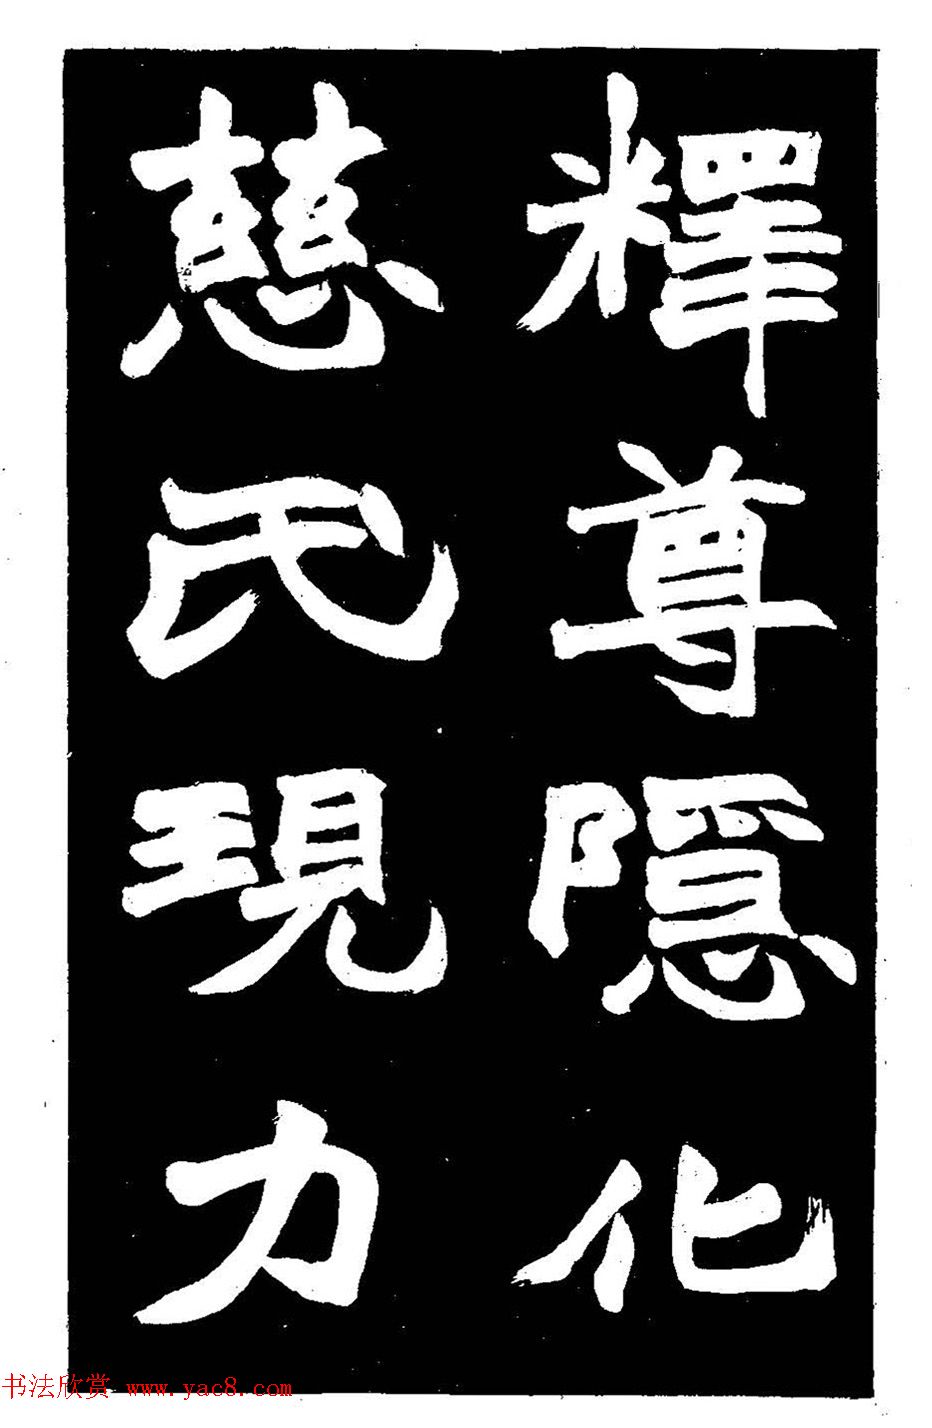 釋尊隱化
慈氏現力
书法欣赏 www.yac8.com